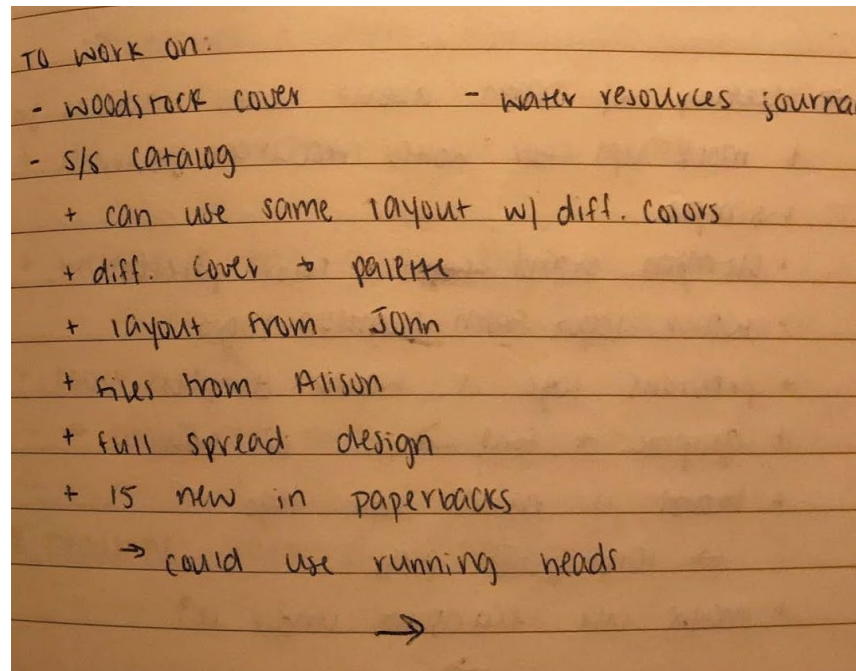 To work on:
- woodstock cover - water resources journal
- s/s catalog
+ can use same layout w/ diff. colors
+ diff. cover + palette
+ layout from John
+ files from Alison
+ full spread design
+ 15 new in paperbacks
→ could use running heads
→